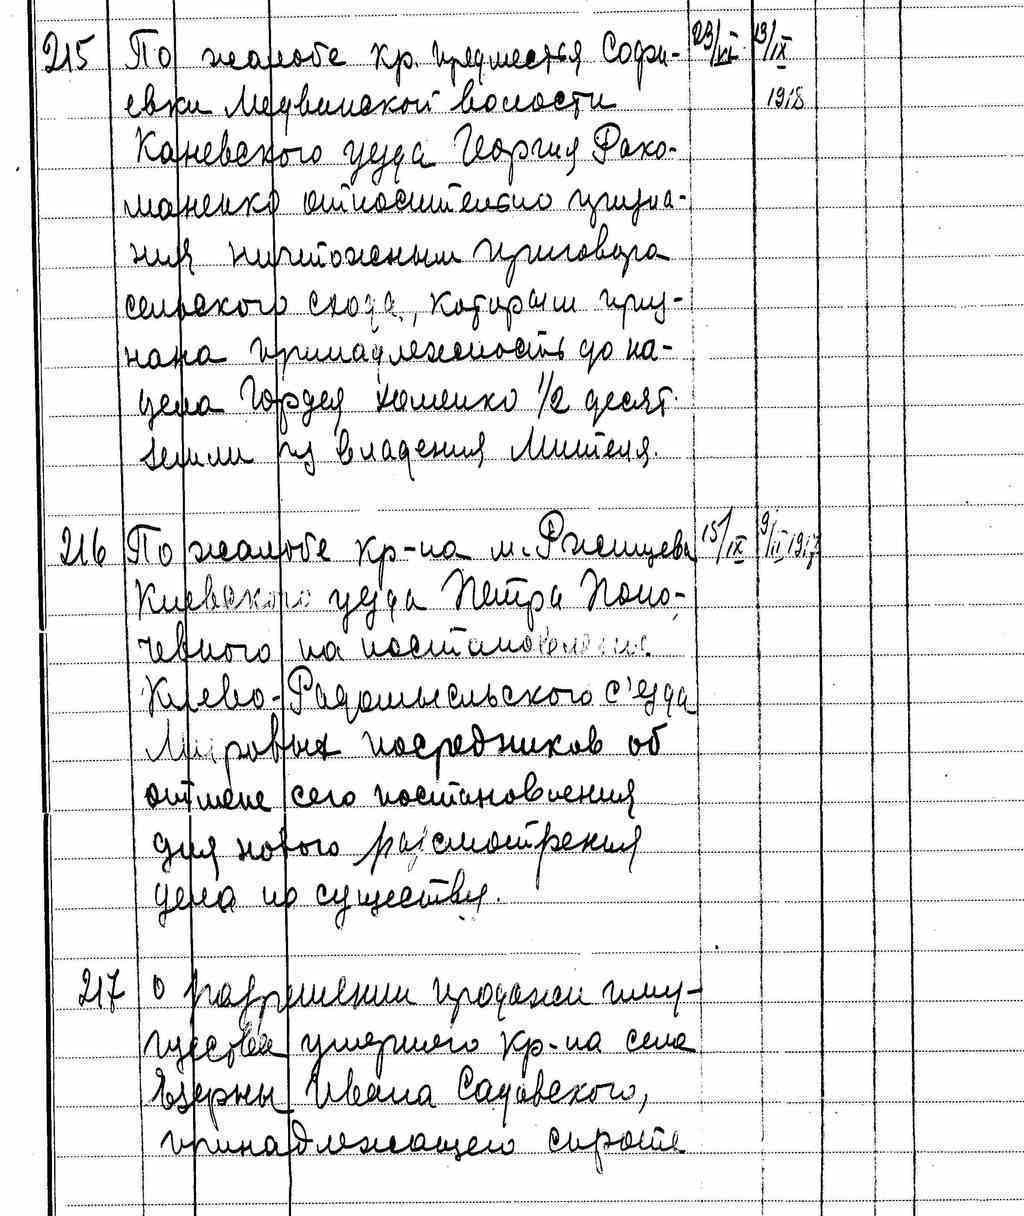 215 По жалобе кр. предместья Софи- 23/VI 13/IX
евки Медвинской волости 1918
Каневского уезда Георгия Рахо-
маненко относительно призна-
ния ничтожным приговора
сельского схода, которым приз-
нана принадлежность до на-
дела Гордея Хоменко 1/2 десят.
земли из владения Мителя.
216 По жалобе кр-на м. Ржищева 15/IX 9/II 1917
Киевского уезда Петра Поно-
чевного на постановление
Киево-Радомысльского с'езда
Мировых посредников об
отмене сего постановления
для нового разсмотрения
дела по существу.
217 О разрешении продажи иму-
щества умершего кр-на села
Езерны Ивана Садовского,
принадлежащего сироте